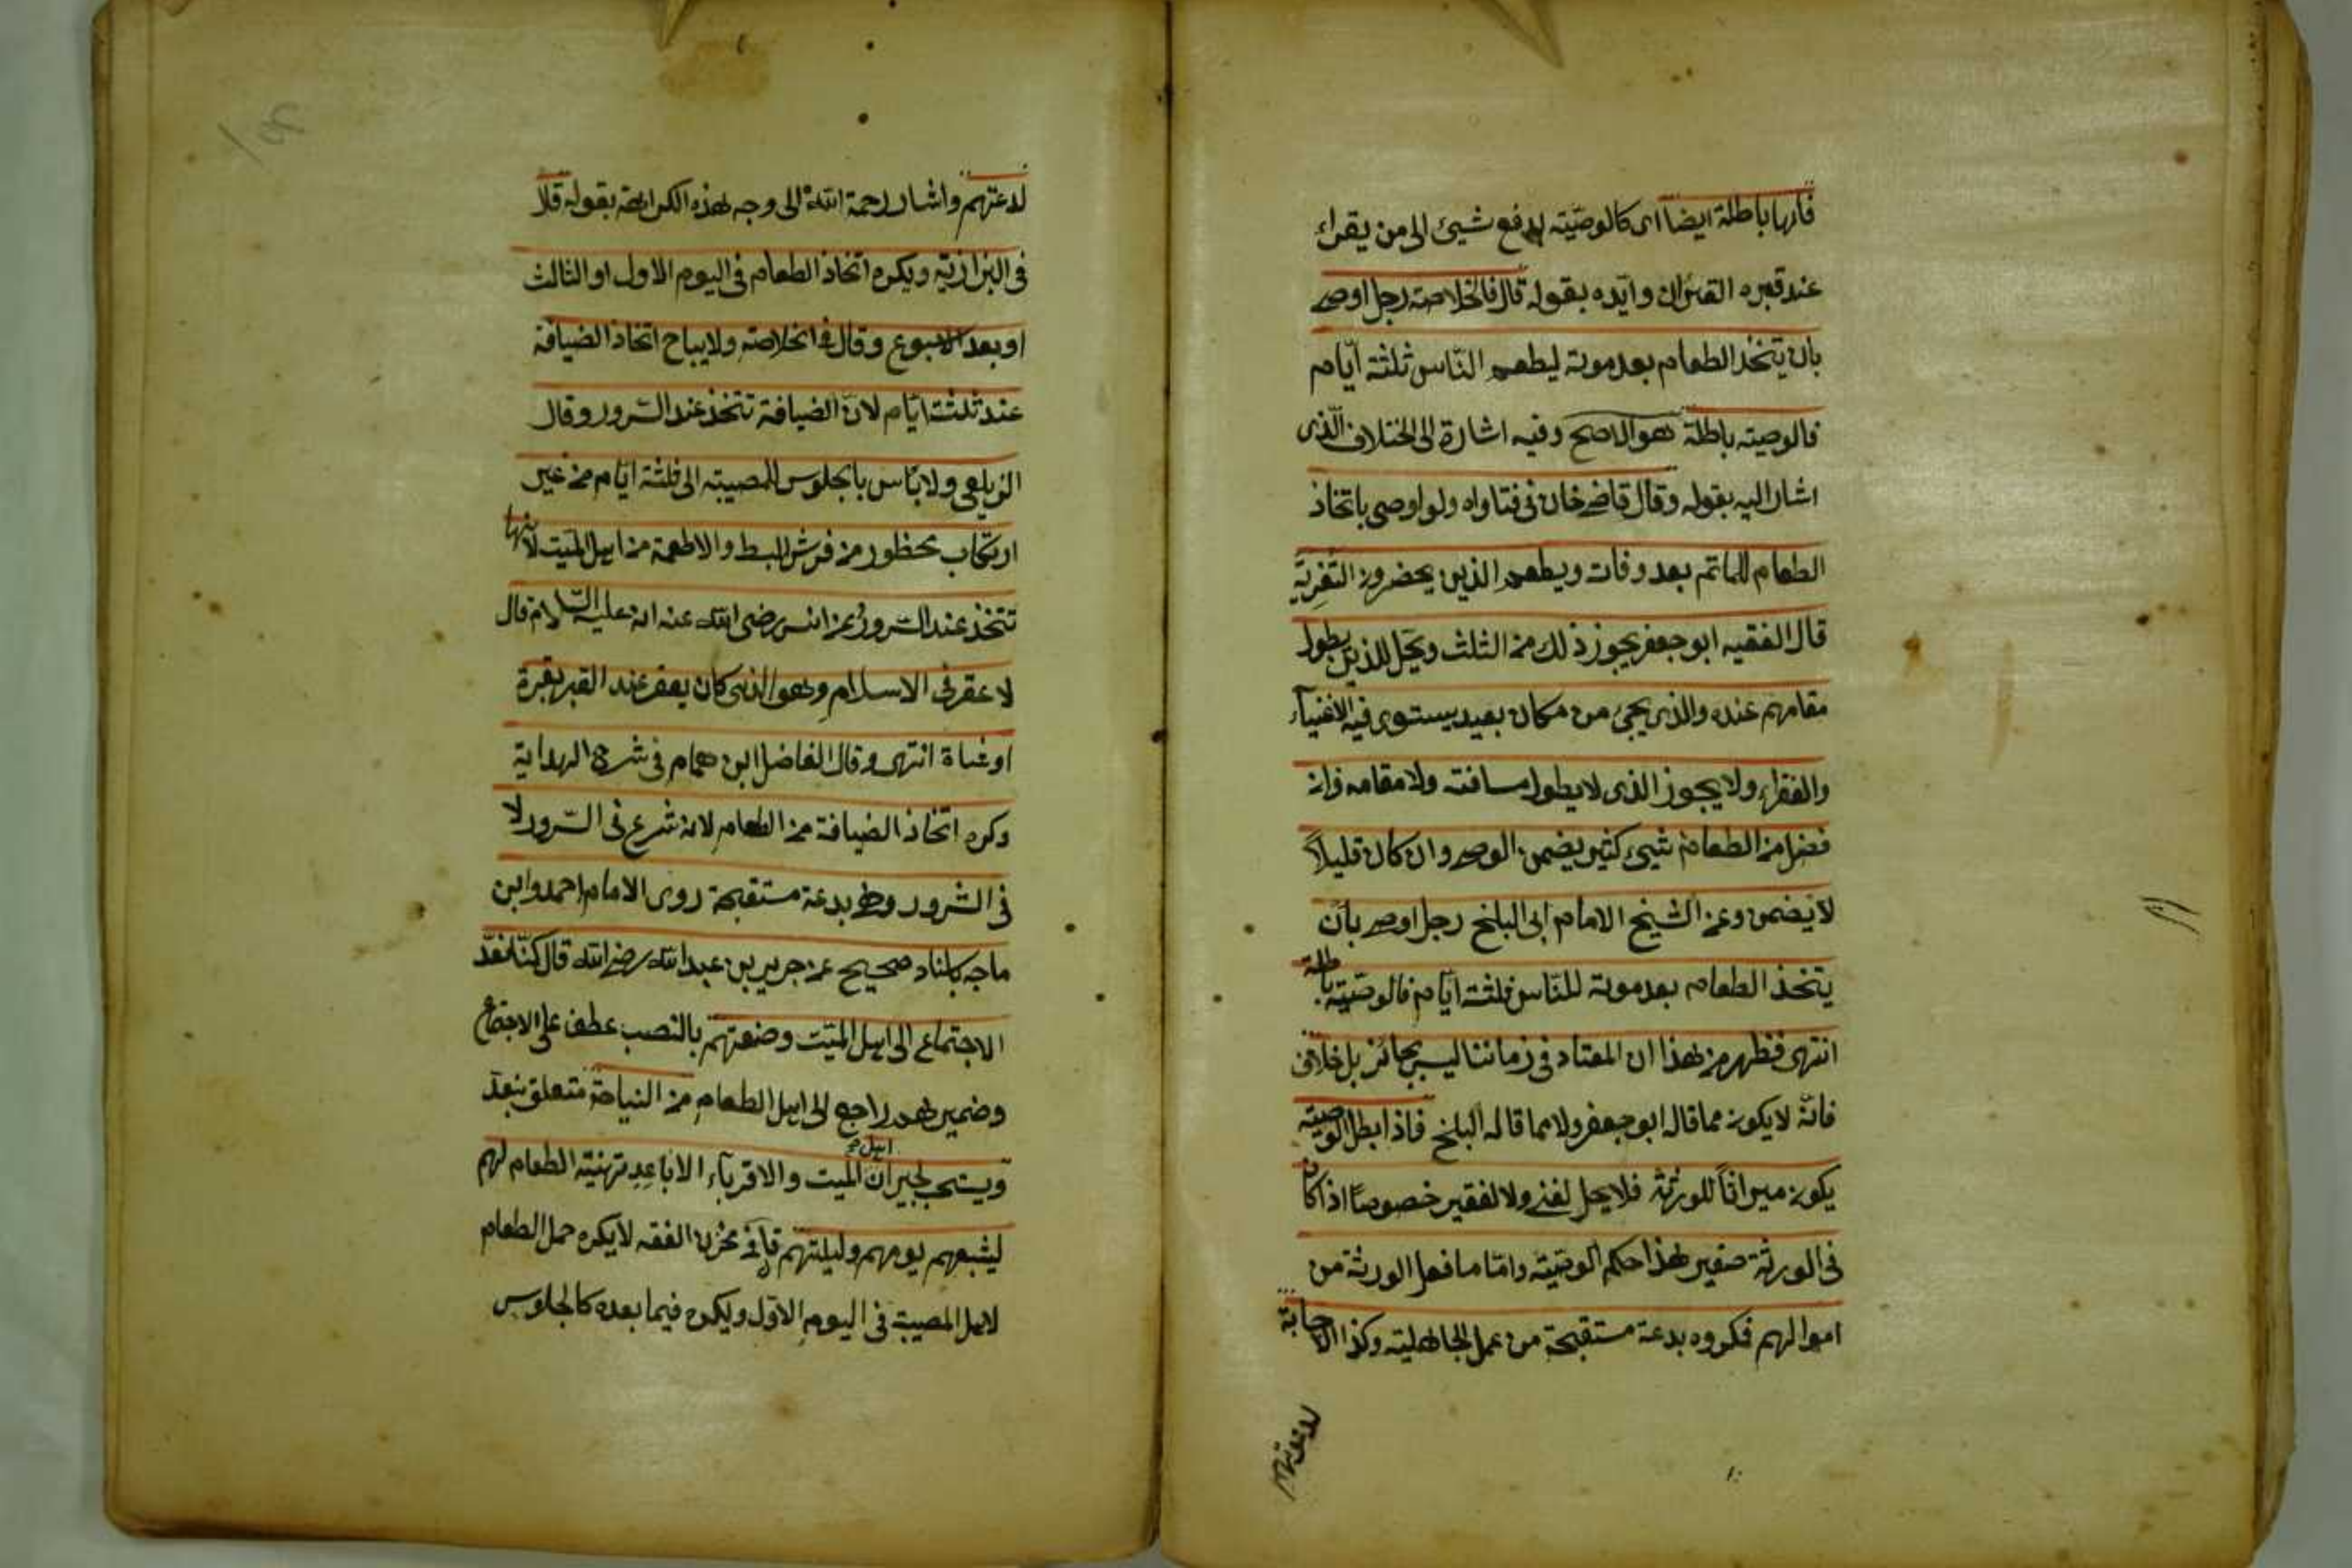 فانها باطلة ايضا اى كالوصية بدفع شيئ الى من يقراء
عند قبره القران وايده بقوله قال فى الخلاصة رجل اوصى
بان يتخذ الطعام بعد موته ليطعم الناس ثلثة ايام
فالوصية باطلة هو الاصح وفيه اشارة الى اختلاف الذى
اشار اليه بقوله وقال قاضى خان فى فتاواه ولو اوصى باتخاذ
الطعام للماتم بعد وفات ويطعم الذين يحضرون التعزية
قال الفقيه ابو جعفر يجوز ذلك من الثلث ويحل للذين يطول
مقامهم عنده والذى يجئ من مكان بعيد يستوى فيه الاغنياء
والفقراء ولا يجوز الذى لا يطول مسافته ولا مقامه فان
فضل من الطعام شيئ كثير يضمن الوصى وان كان قليلاً
لا يضمن وعن الشيخ الامام ابى البلخى رجل اوصى بان
يتخذ الطعام بعد موته للناس ثلثة ايام فالوصية باطلة
انتهى فظهر من هذا ان المعتاد فى زماننا ليس بجائز بل خلاف
فانه لا يكون مما قاله ابو جعفر ولا مما قاله البلخى فاذا بطل الوصية
يكون ميراثاً للورثة فلا يحل لغنى ولا لفقير خصوصاً اذا كان
فى الورثة صغير هذا حكم الوصية واما ما فعل الورثة من
اموالهم فكروه بدعة مستقبحة من عمل الجاهلية وكذا الاجابة
لدعوتهم
لدعوتهم واشار رحمة الله الى وجه هذه الكراهة بقوله قال
فى البزازية ويكره اتخاذ الطعام فى اليوم الاول او الثالث
او بعد الاسبوع وقال فى الخلاصة ولا يباح اتخاذ الضيافة
عند ثلثة ايام لان الضيافة تتخذ عند السرور وقال
الزيلعى ولا بأس بالجلوس للمصيبة الى ثلثة ايام من غير
ارتكاب محظور من فرش البسط والاطعمة من اهل الميت لانها
تتخذ عند السرور وعن انس رضى الله عنه انه عليه السلام قال
لا عقر فى الاسلام وهو الذى كان يعقر عند القبر بقرة
او شاة انتهى وقال الفاضل ابن همام فى شرح الهداية
وكره اتخاذ الضيافة من الطعام لانه شرع فى السرور لا
فى الشرور وهى بدعة مستقبحة روى الامام احمد وابن
ماجه باسناد صحيح عن جرير بن عبد الله رضى الله قال كنا نعد
الاجتماع الى اهل الميت وصنعتهم بالنصب عطف على الاجتماع
وضمير هم راجع الى اهل الطعام من النياحة متعلق بنعد
ويستحب لجيران اهل الميت والاقرباء الاباعد تهيئة الطعام لهم
ليشبعهم يومهم وليلتهم قال فى مخزن الفقه لا يكره حمل الطعام
لاهل المصيبة فى اليوم الاول ويكره فيما بعده كالجلوس